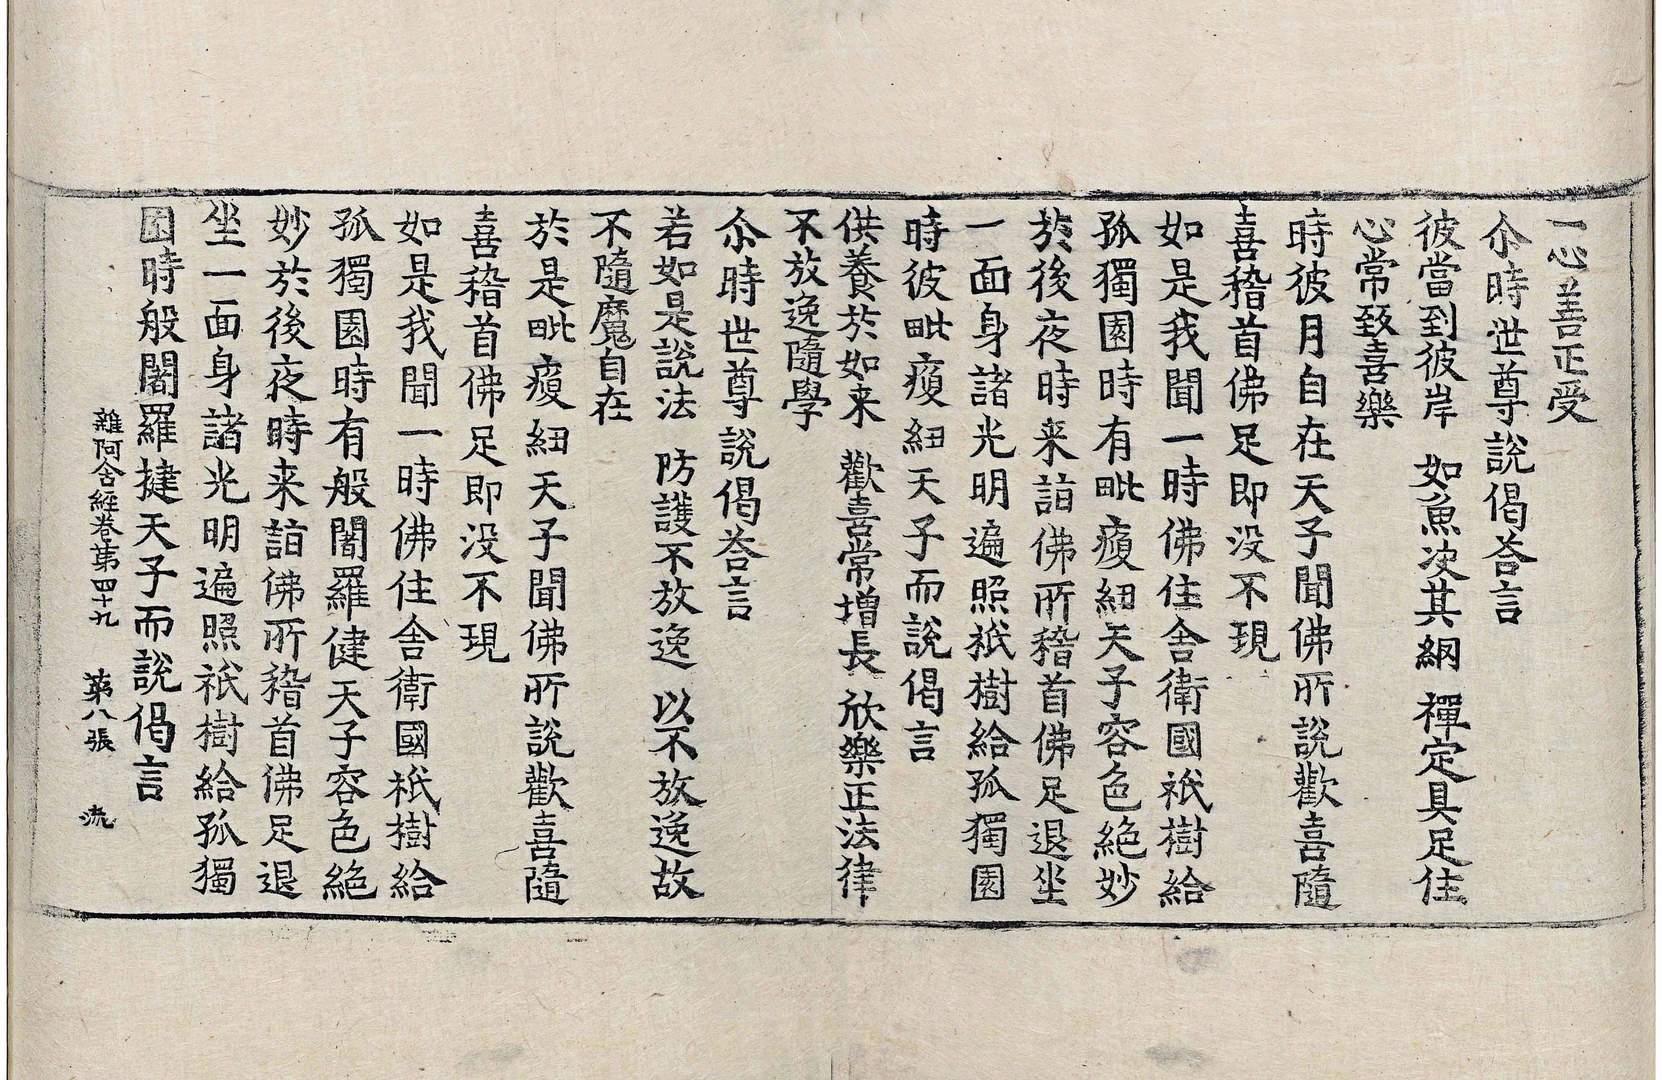 一心善正受
尒時世尊說偈荅言
彼當到彼岸 如魚决其綱 禪定具足住
心常致喜樂
時彼月自在天子聞佛所說歡喜隨
喜稽首佛足即没不現
如是我聞一時佛住舍衛國祇樹給
孤獨園時有毗瘦紐天子容色絶妙
於後夜時来詣佛所稽首佛足退坐
一面身諸光明遍照祇樹給孤獨園
時彼毗瘦紐天子而說偈言
供養於如来 歡喜常增長 欣樂正法律
不放逸隨學
尒時世尊說偈荅言
若如是說法 防護不放逸 以不放逸故
不隨魔自在
於是毗瘦紐天子聞佛所說歡喜隨
喜稽首佛足即没不現
如是我聞一時佛住舍衛國祇樹給
孤獨園時有般闍羅健天子容色絶
妙於後夜時来詣佛所稽首佛足退
坐一面身諸光明遍照祇樹給孤獨
園時般闍羅揵天子而說偈言
雜阿含經卷第四十九 第八張 流